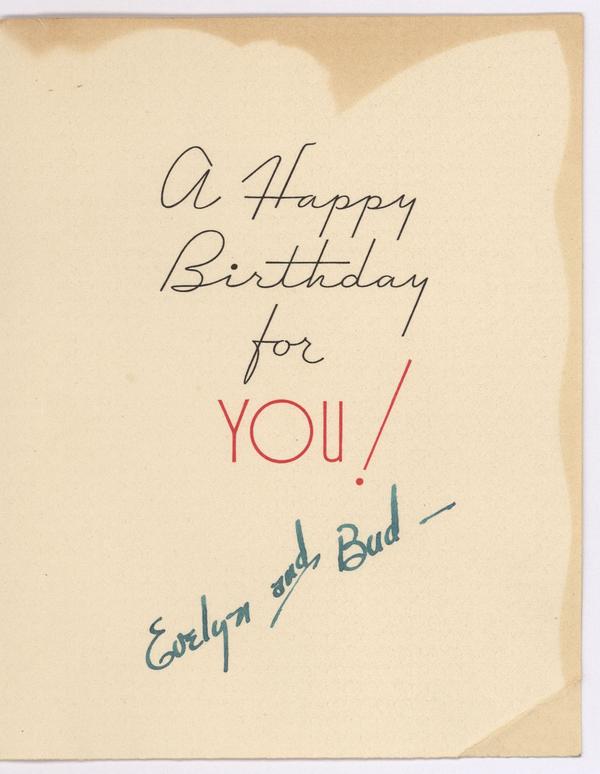 A Happy
Birthday
for
YOU!
Evelyn and Bud –